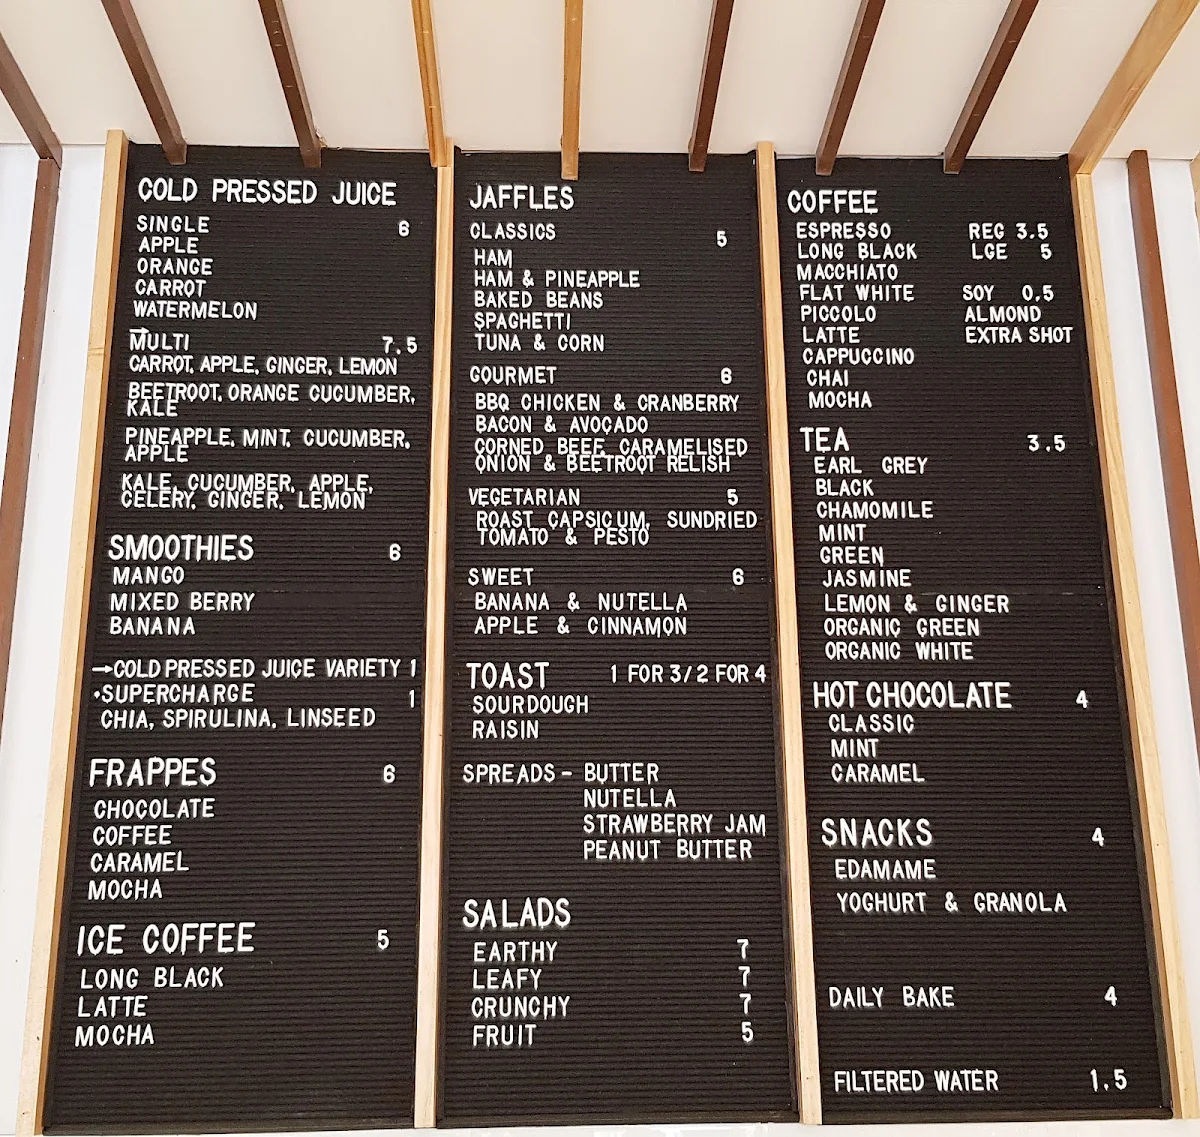 COLD PRESSED JUICE
SINGLE 6
APPLE
ORANGE
CARROT
WATERMELON
MULTI 7.5
CARROT, APPLE, GINGER, LEMON
BEETROOT, ORANGE CUCUMBER,
KALE
PINEAPPLE, MINT, CUCUMBER,
APPLE
KALE, CUCUMBER, APPLE,
CELERY, GINGER, LEMON
SMOOTHIES 6
MANGO
MIXED BERRY
BANANA
→COLD PRESSED JUICE VARIETY 1
•SUPERCHARGE 1
CHIA, SPIRULINA, LINSEED
FRAPPES 6
CHOCOLATE
COFFEE
CARAMEL
MOCHA
ICE COFFEE 5
LONG BLACK
LATTE
MOCHA
JAFFLES
CLASSICS 5
HAM
HAM & PINEAPPLE
BAKED BEANS
SPAGHETTI
TUNA & CORN
GOURMET 6
BBQ CHICKEN & CRANBERRY
BACON & AVOCADO
CORNED BEEF, CARAMELISED
ONION & BEETROOT RELISH
VEGETARIAN 5
ROAST CAPSICUM, SUNDRIED
TOMATO & PESTO
SWEET 6
BANANA & NUTELLA
APPLE & CINNAMON
TOAST 1 FOR 3/2 FOR 4
SOURDOUGH
RAISIN
SPREADS - BUTTER
NUTELLA
STRAWBERRY JAM
PEANUT BUTTER
SALADS
EARTHY 7
LEAFY 7
CRUNCHY 7
FRUIT 5
COFFEE
ESPRESSO REG 3.5
LONG BLACK LGE 5
MACCHIATO
FLAT WHITE SOY 0.5
PICCOLO ALMOND
LATTE EXTRA SHOT
CAPPUCCINO
CHAI
MOCHA
TEA 3.5
EARL GREY
BLACK
CHAMOMILE
MINT
GREEN
JASMINE
LEMON & GINGER
ORGANIC GREEN
ORGANIC WHITE
HOT CHOCOLATE 4
CLASSIC
MINT
CARAMEL
SNACKS 4
EDAMAME
YOGHURT & GRANOLA
DAILY BAKE 4
FILTERED WATER 1.5